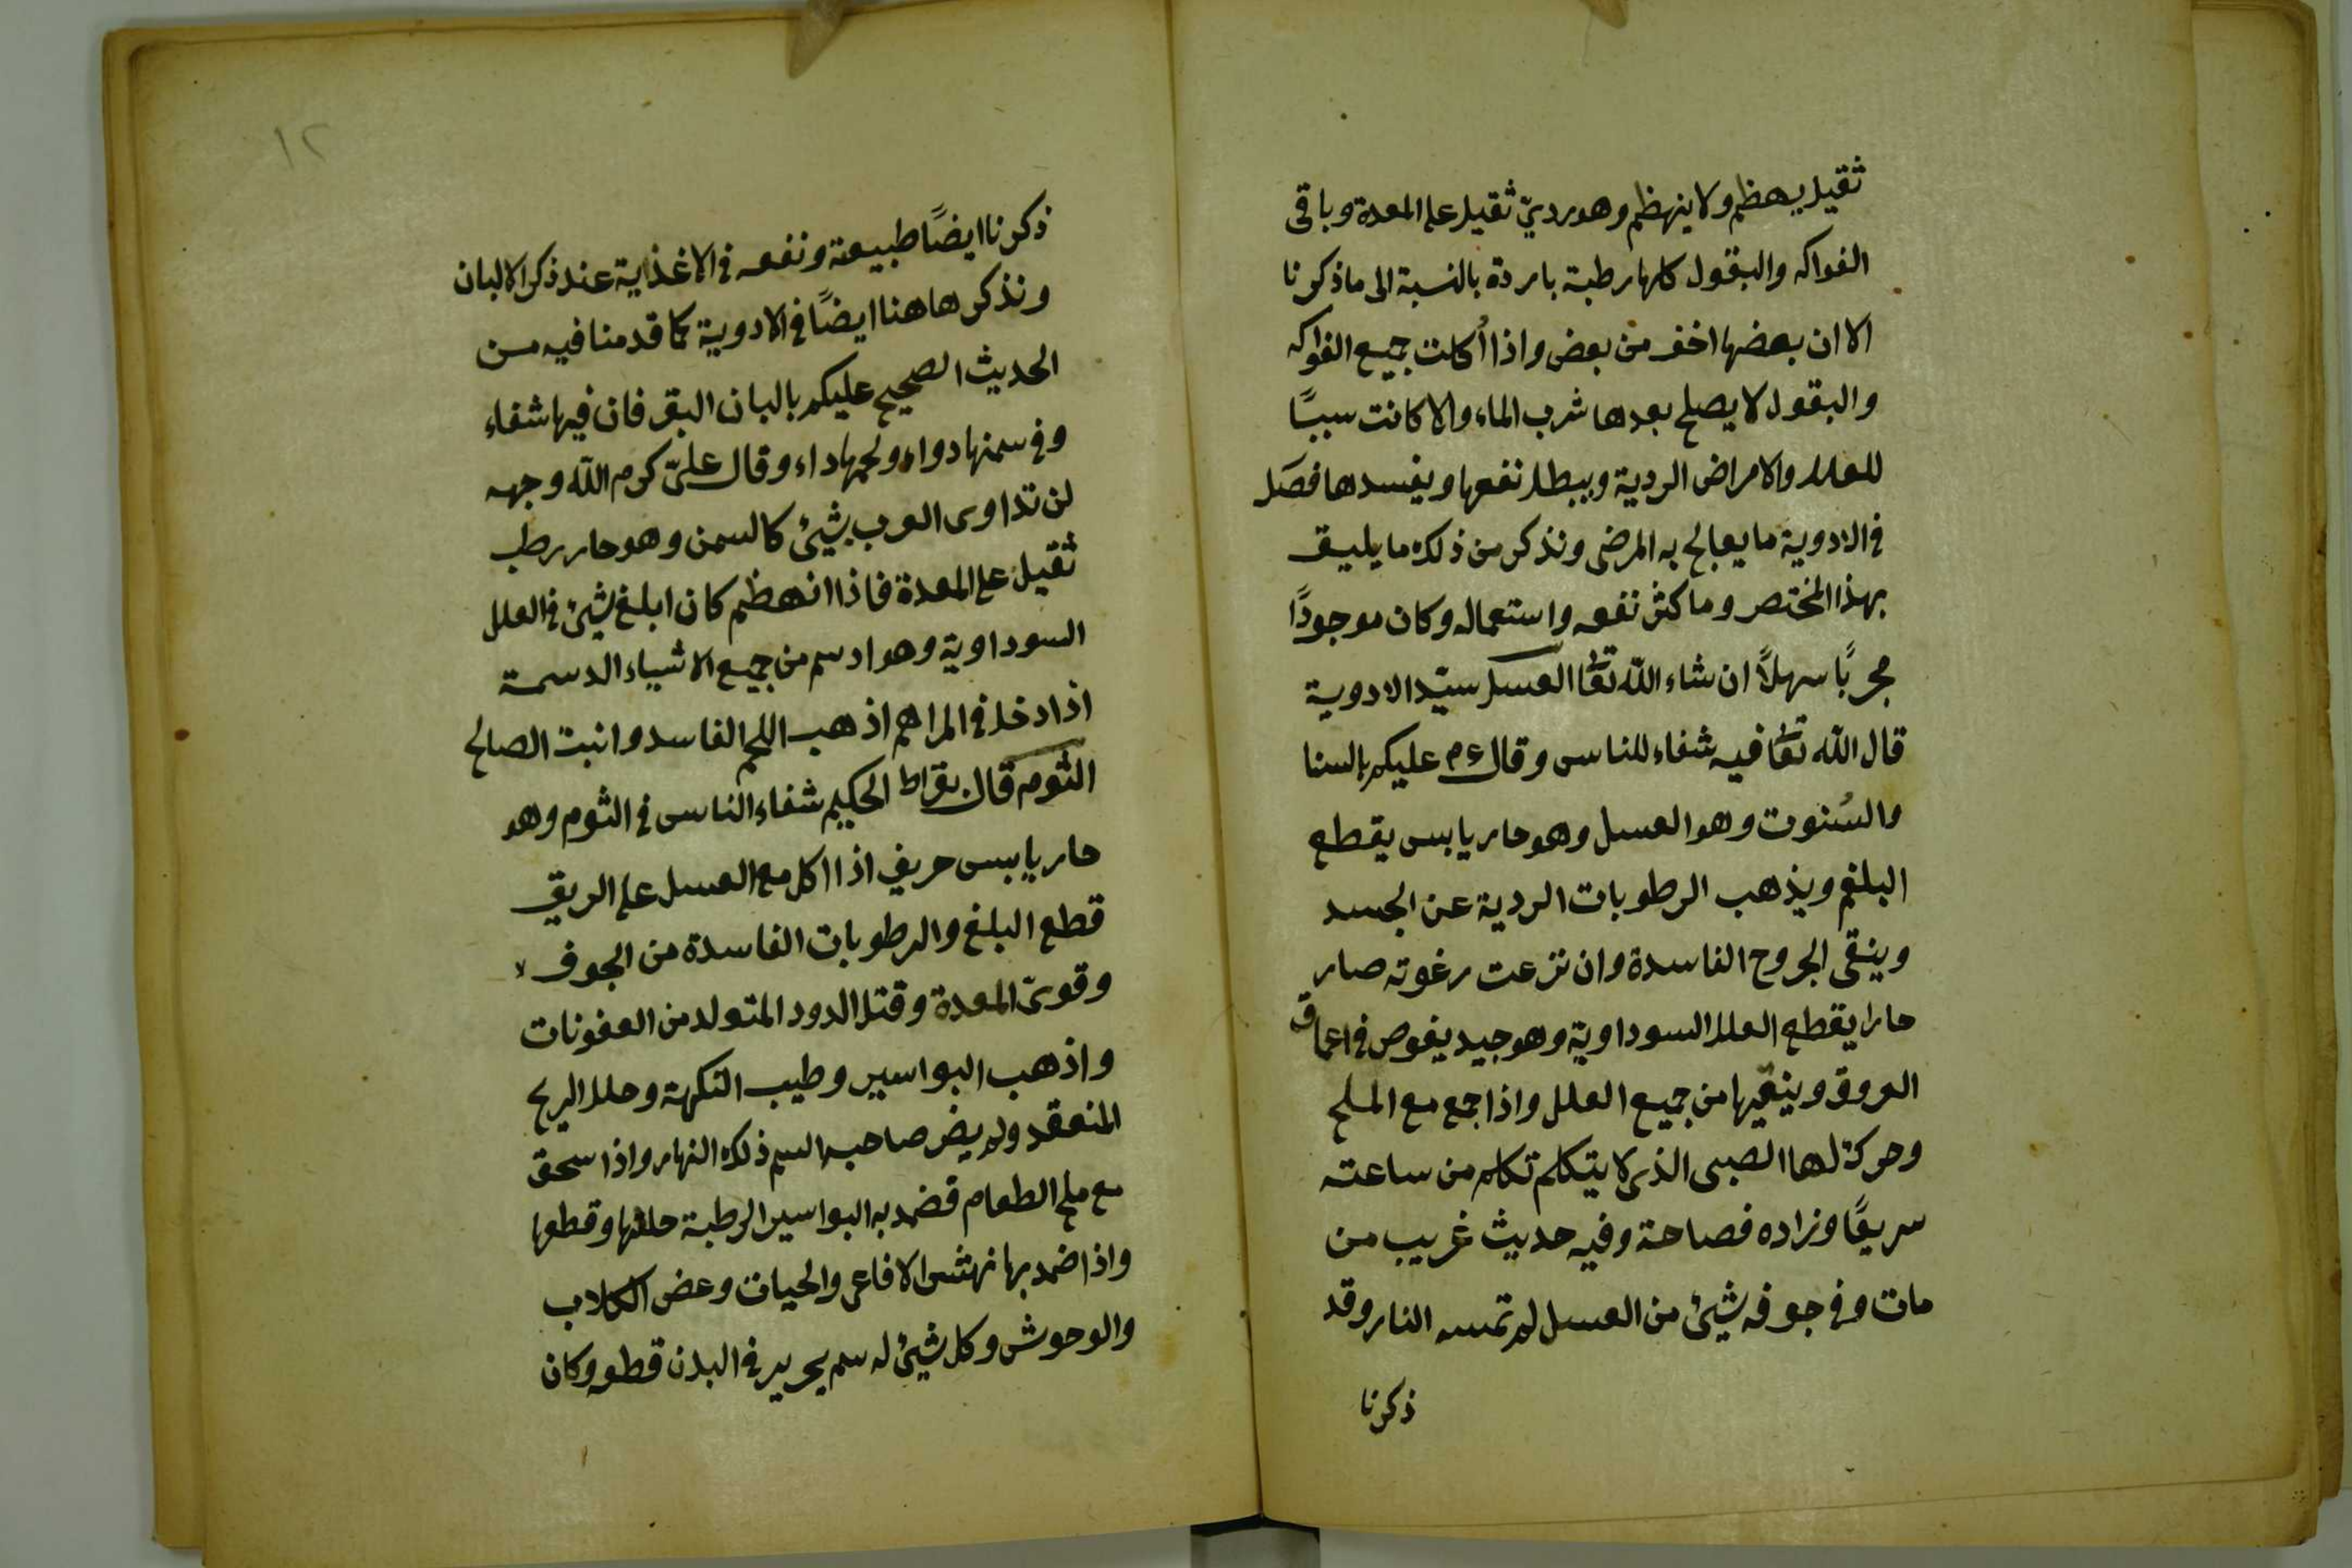 ثقيل يهظم ولا ينهظم وهو رديّ ثقيل على المعدة وباقى
الفواكه والبقول كلها رطبة باردة بالنسبة الى ما ذكرنا
الا ان بعضها اخف من بعض واذا أكلت جميع الفواكه
والبقول لا يصلح بعدها شرب الماء والا كانت سببًا
للعلل والامراض الردية ويبطل نفعها ويفسدها فصَل
فى الادوية ما يعالج به المرضى ونذكر من ذلك ما يليق
بهذا المختصر وما كثر نفعه واستعماله وكان موجودًا
مجربًا سهلاً ان شاء الله تعٰا العسل سيّد الادوية
قال الله تعٰا فيه شفاء للناس وقال ءم عليكم بالسنا
والسُنوت وهو العسل وهو حار يابس يقطع
البلغم ويذهب الرطوبات الردية عن الجسد
وينقى الجروح الفاسدة وان نزعت رغوته صار
حارا يقطع العلل السوداوية وهو جيد يغوص فى اعماق
العروق وينقيها من جميع العلل واذا جمع مع الملح
وحركة لها الصبى الذى لا يتكلم تكلم من ساعته
سريعًا وزاده فصاحة وفيه حديث غريب من
مات وفى جوفه شيئ من العسل لم تمسه النار وقد
ذكرنا
١٢
ذكرنا ايضًا طبيعة ونفعه فى الاغذاية عند ذكر الالبان
ونذكر هاهنا ايضًا فى الادوية كما قدمنا فيه من
الحديث الصحيح عليكم بالبان البقر فان فيها شفاء
وفى سمنها دواء ولحمها داء وقال علىّ كرم الله وجهه
لن تداوى العرب بشيئ كالسمن وهو حار رطب
ثقيل على المعدة فاذا انهظم كان ابلغ شيئ فى العلل
السوداوية وهو ادسم من جميع الاشياء الدسمة
اذا دخل فى المراهم اذهب اللحم الفاسد وانبت الصالح
الثوم قال بقراط الحكيم شفاء الناس فى الثوم وهو
حار يابس حريف اذا اكل مع العسل على الريق
قطع البلغ والرطوبات الفاسدة من الجوف
وقوىّ المعدة وقتل الدود المتولد من العفونات
واذهب البواسير وطيب النكهة وحلل الريح
المنعقد ولم يضر صاحبه السم ذلك النهار واذا سحق
مع ملح الطعام فضمد به البواسير الرطبة حللها وقطعها
واذا ضمد بها نهش الافاعى والحيات وعض الكلاب
والوحوش وكل شيئ له سم يجرى فى البدن قطعه وكان